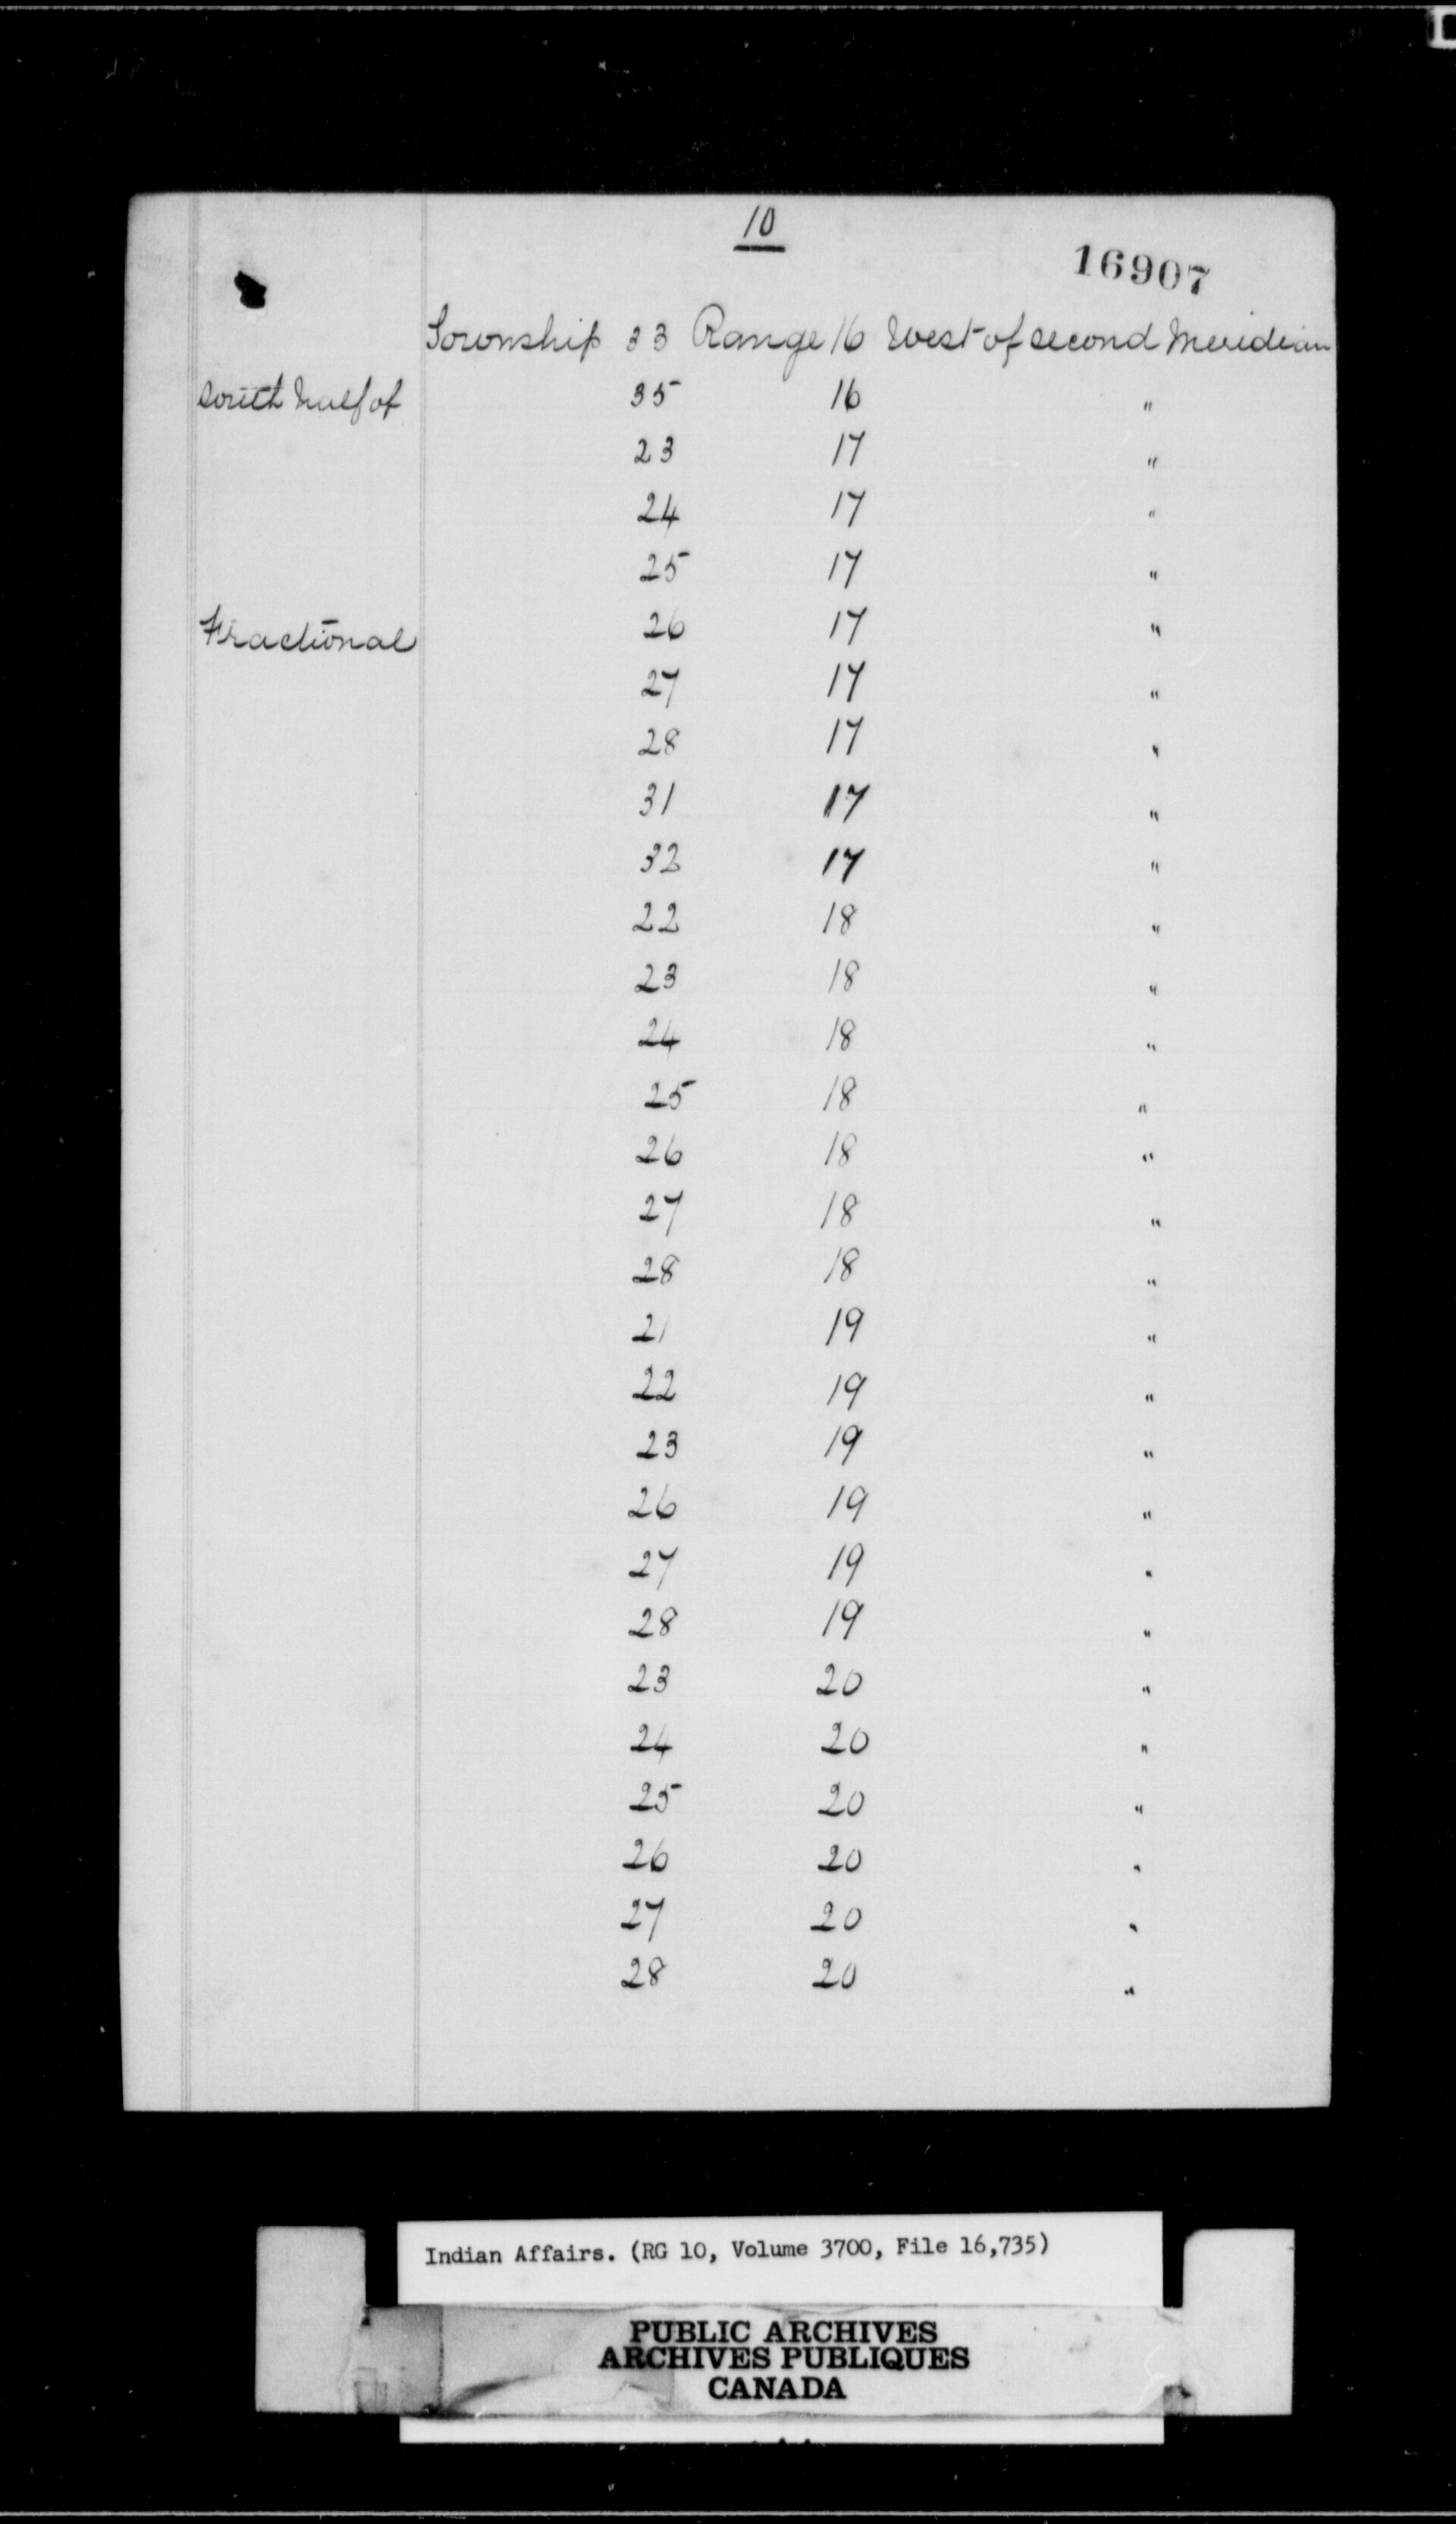 10
16907
Township 33 Range 16 West of second Meridian
South half of 35 16 "
23 17 "
24 17 "
25 17 "
Fractional 26 17 "
27 17 "
28 17 "
31 17 "
32 17 "
22 18 "
23 18 "
24 18 "
25 18 "
26 18 "
27 18 "
28 18 "
21 19 "
22 19 "
23 19 "
26 19 "
27 19 "
28 19 "
23 20 "
24 20 "
25 20 "
26 20 "
27 20 "
28 20 "
Indian Affairs. (RG 10, Volume 3700, File 16,735)
PUBLIC ARCHIVES
ARCHIVES PUBLIQUES
CANADA